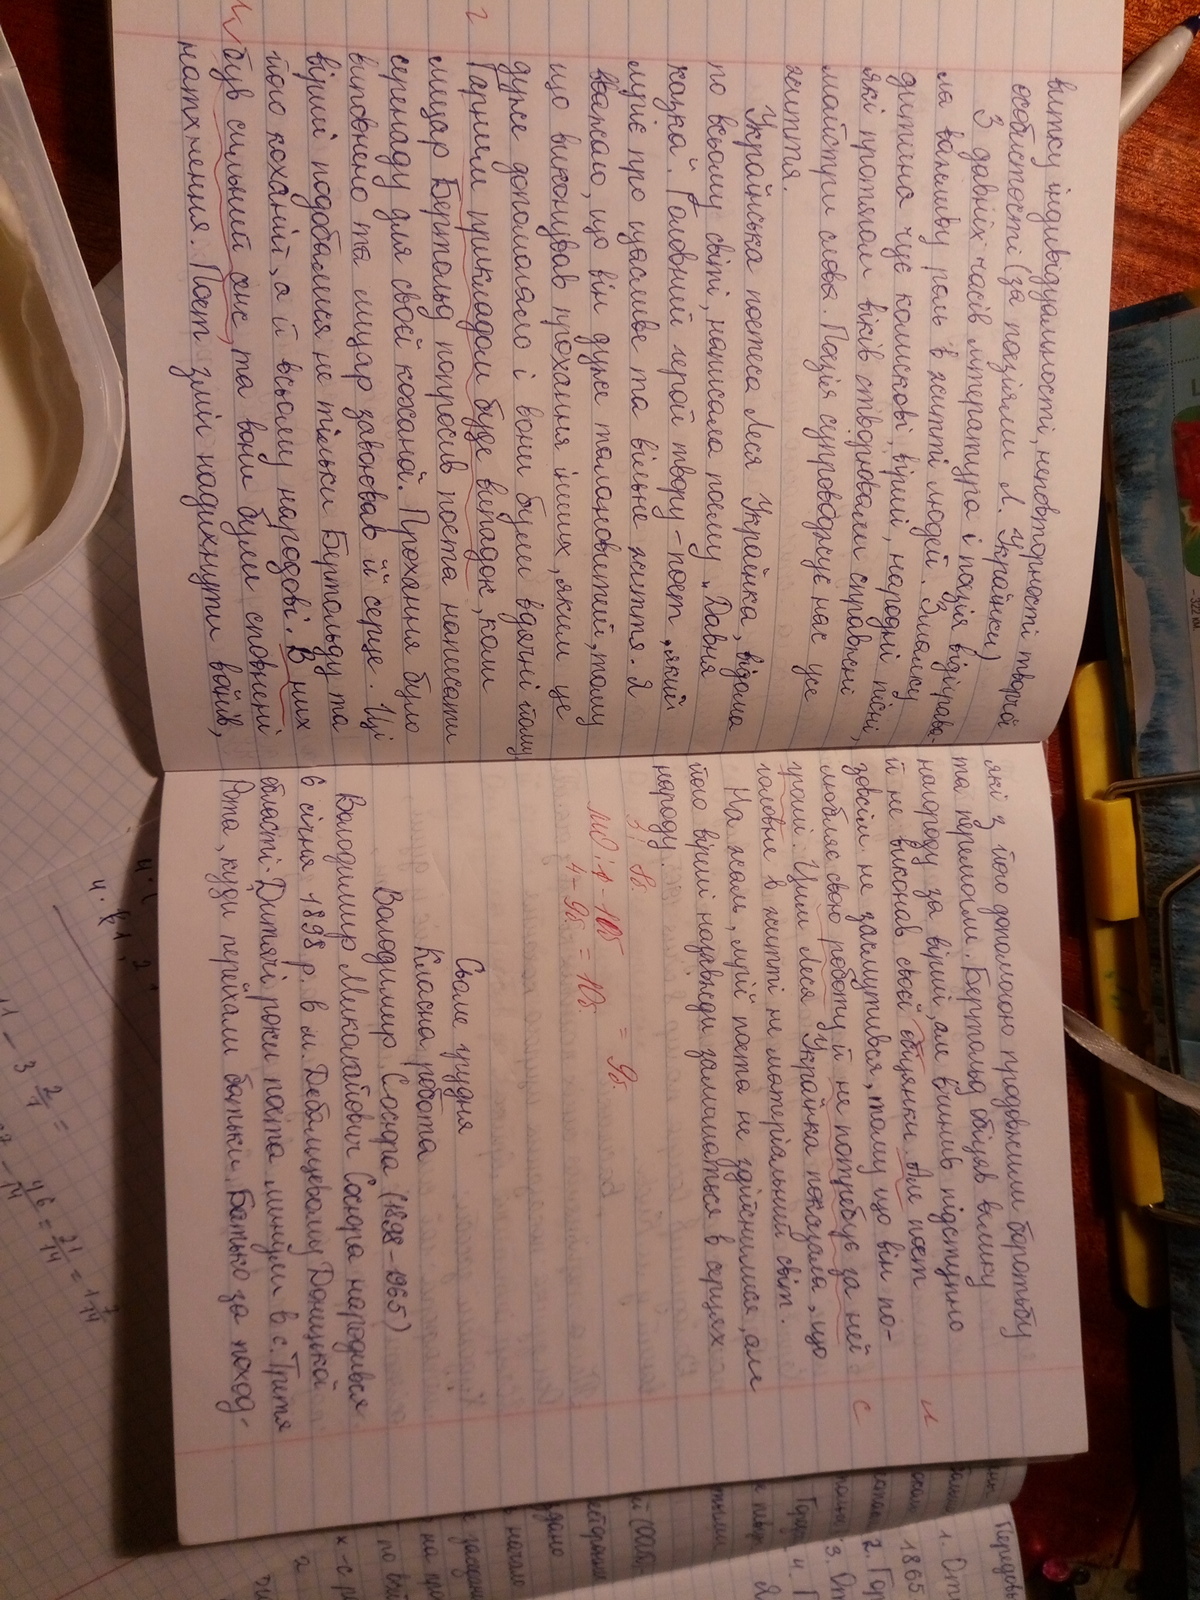 витку індивідуальності, неповторності творчої
особистості (за поезіями Л. Українки)
З давніх часів література і поезія відіграва-
ла важливу роль в житті людей. Змалку
дитина чує колискові, вірші, народні пісні,
які протягом віків створювали справжні
майстри слова. Поезія супроводжує нас усе
життя.
Українська поетеса Леся Українка, відома
по всьому світі, написала поему „Давня
казка". Головний герой твору - поет, який
мріє про щасливе та вільне життя. Я
вважаю, що він дуже талановитий, тому
що виконував прохання інших, яким це
дуже допомагало і вони були вдячні йому
Гарним прикладом буде випадок, коли
лицар Бертольд попросив поета написати
серенаду для своєї коханої. Прохання було
виповнено та лицар завоював її серце. Ці
вірші подобалися не тільки Бертольду та
його коханій, а й всьому народові. В них
був сильний зміс, та вони були сповнені
натхнення. Поет зміг надихнути воїнів,
які з його допомогою продовжили боротьбу
та перемогли. Бертольд обіцяв велику
нагороду за вірші, але вчинив підступно
й не виконав своєї обіцянки. Але поет
зовсім не засмутився, тому що він по-
любляє свою роботу й не потребує за неї
гроші. Цим Леся Українка показала, що
головне в житті не матеріальний світ.
На жаль, мрії поета не здійснилися, але
його вірші назавжди залишаться в серцях
народу.
г
и
с
З; 8б.
= 9б.
4-9б. = 10б.
Сьоме грудня
Класна робота
Володимир Сосюра (1898-1965)
Володимир Миколайович Сосюра народився
6 січня 1898 р. в м. Дебальцевому Донецької
області. Дитячі роки поета минули в с. Третя
Рота, куди переїхали батьки. Батько за поход-